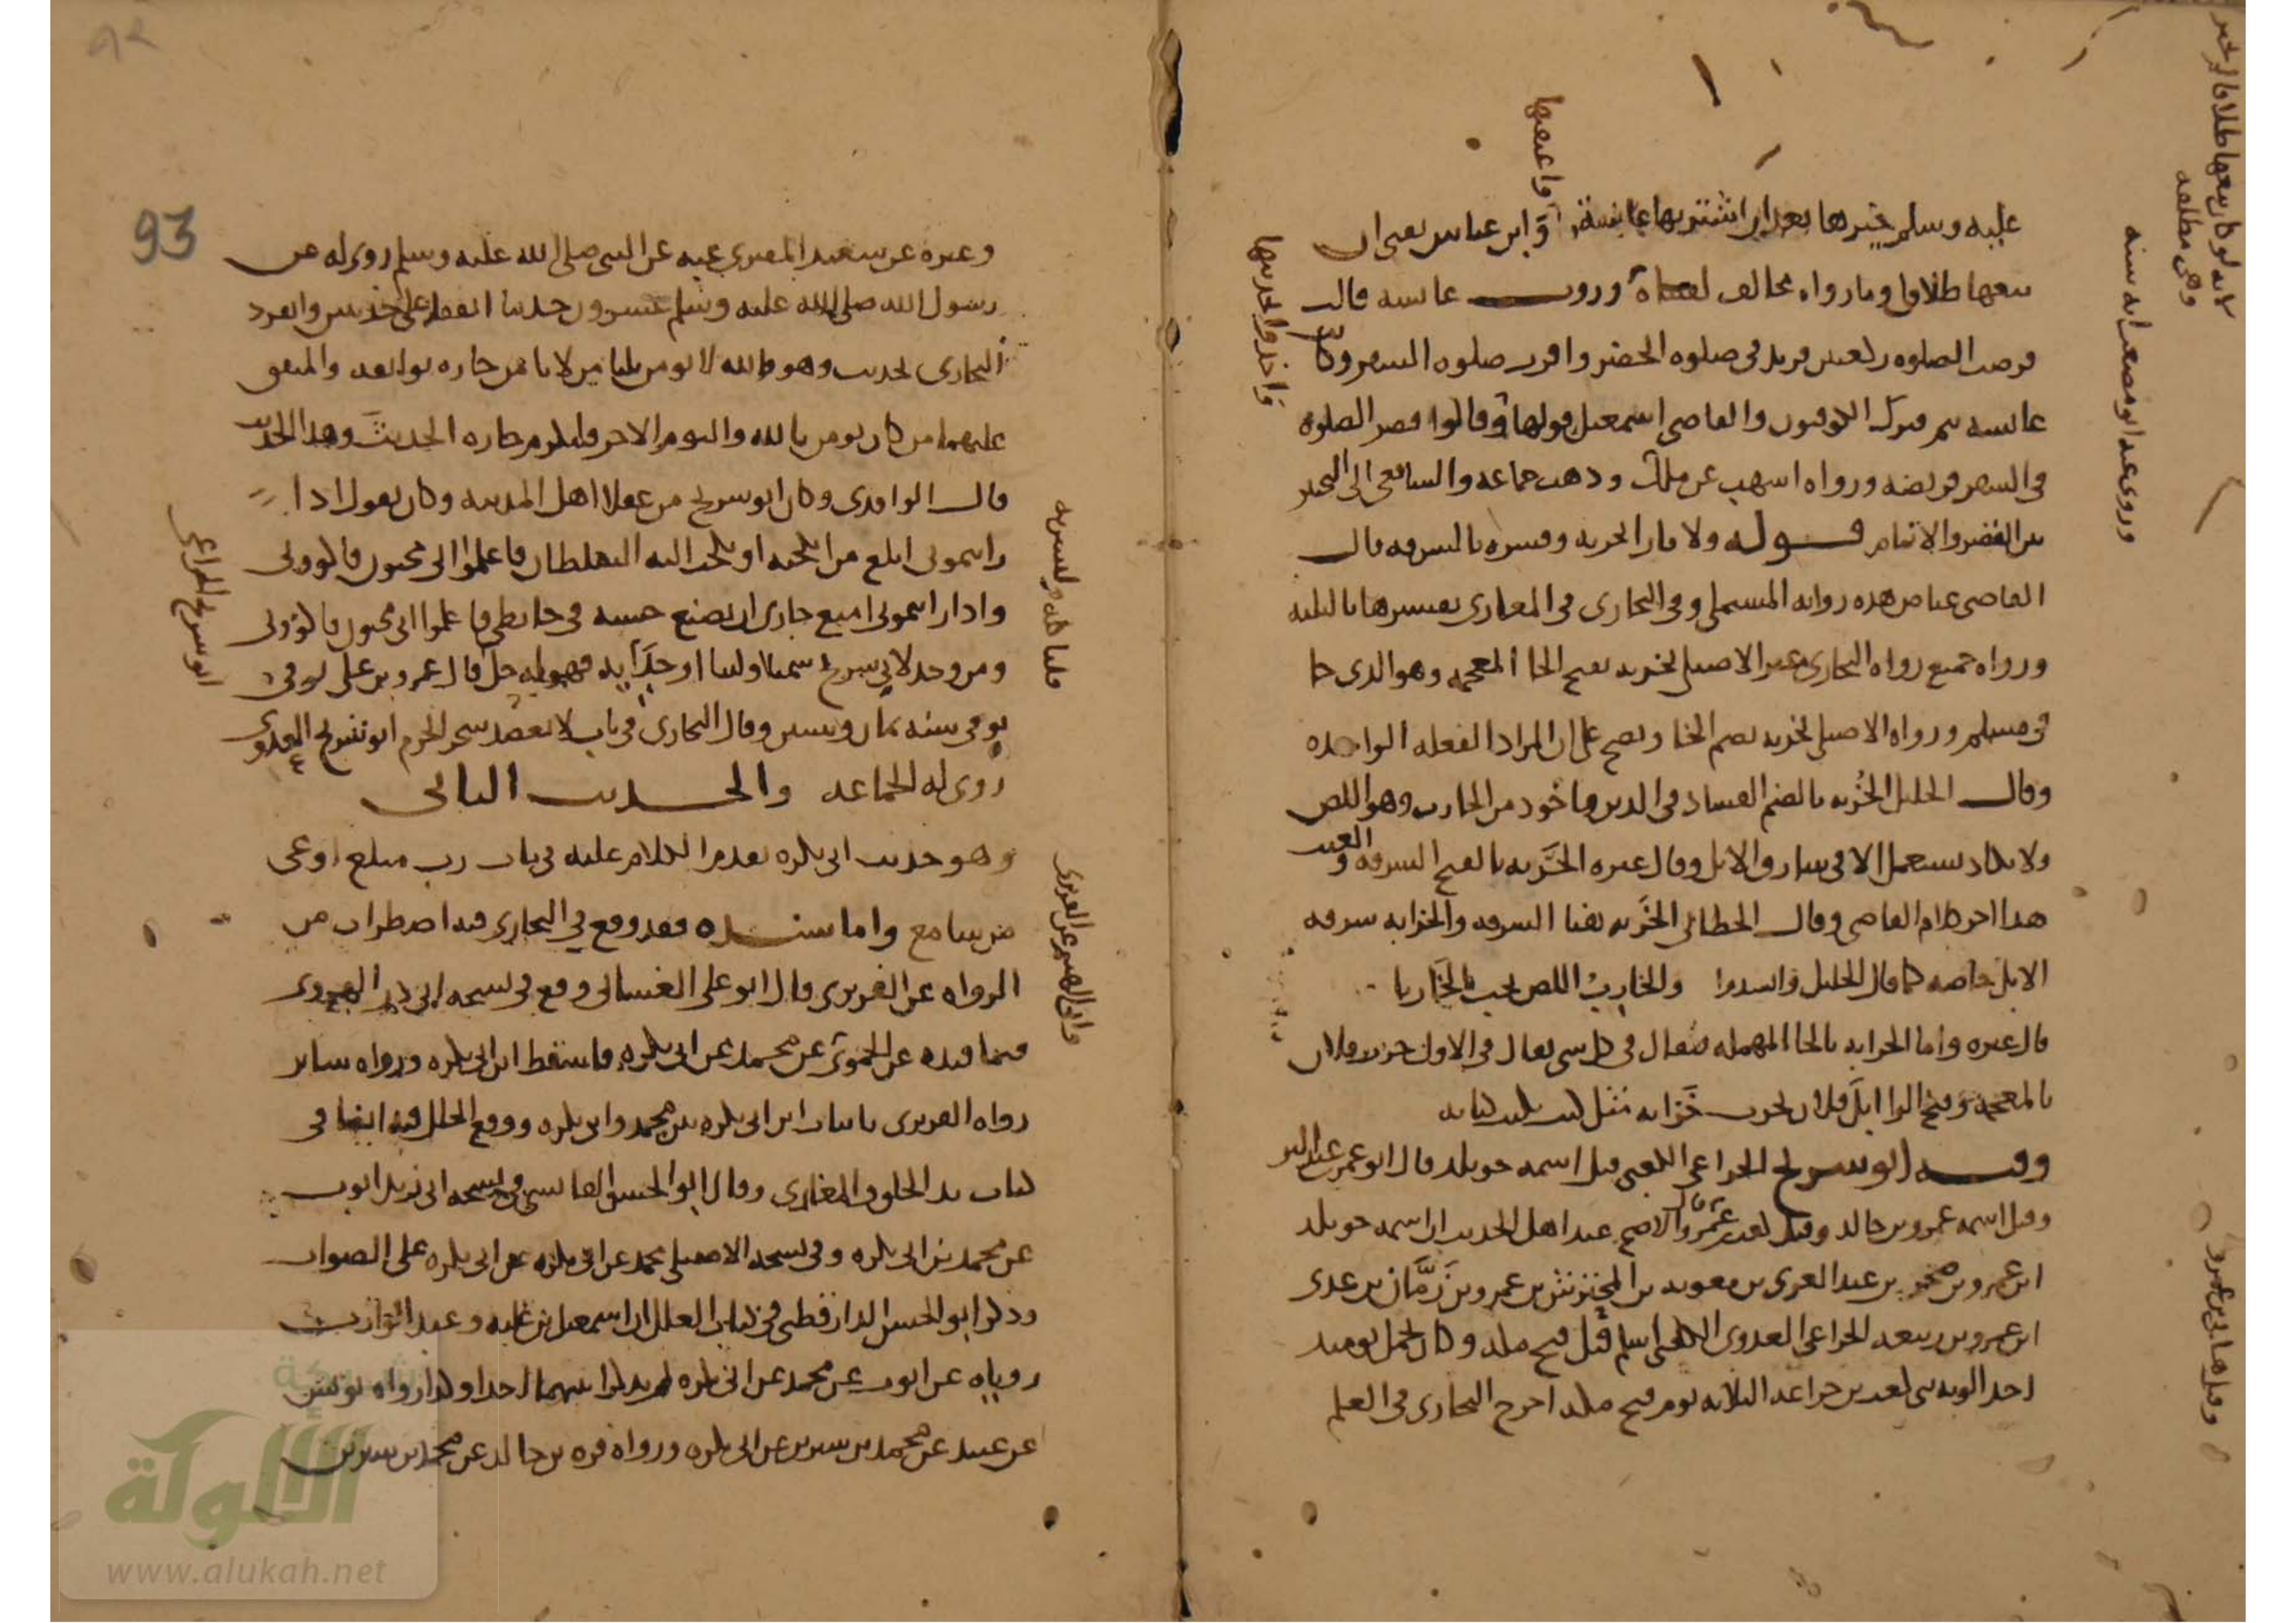 عليه وسلم خيرها بعد ان اشترتها عائشة وابن عباس يفتي ان
بيعها طلاقها وما رواه مخالف لفتياه وروت عائشة قالت
فرضت الصلوة ركعتين فزيد في صلوة الحضر واقرت صلوة السفر وكانت
عائشة تتم فترك الكوفيون والقاضي اسمعيل قولها وقالوا قصر الصلوة
في السفر فريضة ورواه اشهب عن ملك وذهب جماعة والشافعي الى التخيير
بين القصر والاتمام قوله ولا فارا بخربة وفسره بالسرقة قال
القاضي عياض هذه رواية المستملي وفي البخاري في المغازي تفسيرها بالبلية
ورواه جميع رواة البخاري غير الاصيلي بخربة بفتح الخا المعجمة وهو الذي جا
في مسلم ورواه الاصيلي بخربة بضم الخا وتصح على ان المراد الفعلة الواحدة
وقال الخليل الخُربة بالضم الفساد في الدين ماخوذ من الخارب وهو اللص
ولا يكاد يستعمل الا في سارق الابل وقال غيره الخَربة بالفتح السرقة والعيب
هذا اخر كلام القاضي وقال الخطابي الخربة هنا السرقة والخرابة سرقة
الابل خاصة كما قال الخليل وانشدوا والخارب اللص يحب الخاربا
قال غيره واما الحرابة بالحا المهملة فيقال في كل شي يقال في الاول خرب فلان
بالمعجمة وفتح الرا ابل فلان يخرب خرابة مثل كتب يكتب كتابة
وفيه ابو شريح الخزاعي الكعبي قيل اسمه خويلد قال ابو عمر بن عبد البر
وقيل اسمه عمرو بن خالد وقيل كعب بن عمرو قال والاصح عند اهل الحديث ان اسمه خويلد
ابن عمرو بن صخر بن عبد العزى بن معوية بن المحترش بن عمرو بن زمّان بن عدي
ابن عمرو بن ربيعة الخزاعي العدوي الكعبي اسلم قبل فتح مكة وكان يحمل يوميذ
احد الوية بني كعب بن خزاعة الثلاثة يوم فتح مكة اخرج البخاري في العلم
واعتقها
واخذ والحديها
وروى عند ابو مصعب انه سنة
وهي مطلقة
93
وغيره عن سعيد المقبري عنه عن النبي صلى الله عليه وسلم روي له عن
رسول الله صلى الله عليه وسلم عشرون حديثا اتفقا على حديثين وانفرد
البخاري بحديث وهو والله لا يومن ثلثا من لا يامن جاره بوايقه والمتفق
عليهما من كان يومن بالله واليوم الاخر فليكرم جاره الحديث وهذا الحديث
قال الواقدي وكان ابو شريح من عقلا اهل المدينة وكان يقول اذا
رايتموني ابلغ من انكحته او نكحت اليه السلطان فاعلموا اني مجنون فاكووني
واذا رايتموني امنع جاري ان يضع خشبة في حايطي فاعلموا اني مجنون فاكووني
ومن وجد لابي شريح سمنا او لبنا او جداية فهو له حل قال عمرو بن علي توفي
توفي سنة ثمان وستين وقال البخاري في باب لا يعضد شجر الحرم ابو شريح العدوي
روى له الجماعة والحديث الثاني
وهو حديث ابي بكرة تقدم الكلام عليه في باب رب مبلغ اوعى
من سامع واما سنده فقد وقع في البخاري فيه اضطراب من
الرواة عن الفربري قال ابو علي الغساني وقع في نسخة ابي ذر الهروي
فيما قيده عن الحموي عن محمد عن ابي بكرة فاسقط ابن ابي بكرة ورواه ساير
رواة الفربري باثبات ابن ابي بكرة بين محمد وابي بكرة ووقع الخلل فيه ايضا في
كتاب بدء الخلق والمغازي وقال ابو الحسن القابسي في نسخة ابي زيد ايوب
عن محمد بن ابي بكرة وفي نسخة الاصيلي محمد عن ابن ابي بكرة عن ابي بكرة على الصواب
وذكر ابو الحسن الدارقطني في كتاب العلل ان اسمعيل بن علية وعبد الوارث
روياه عن ايوب عن محمد عن ابي بكرة لم يذكرا بينهما احدا وكذا رواه يونس
بن عبيد عن محمد بن سيرين عن ابي بكرة ورواه قرة بن خالد عن محمد بن سيرين
ابو شريح الخزاعي
الألوكة
www.alukah.net